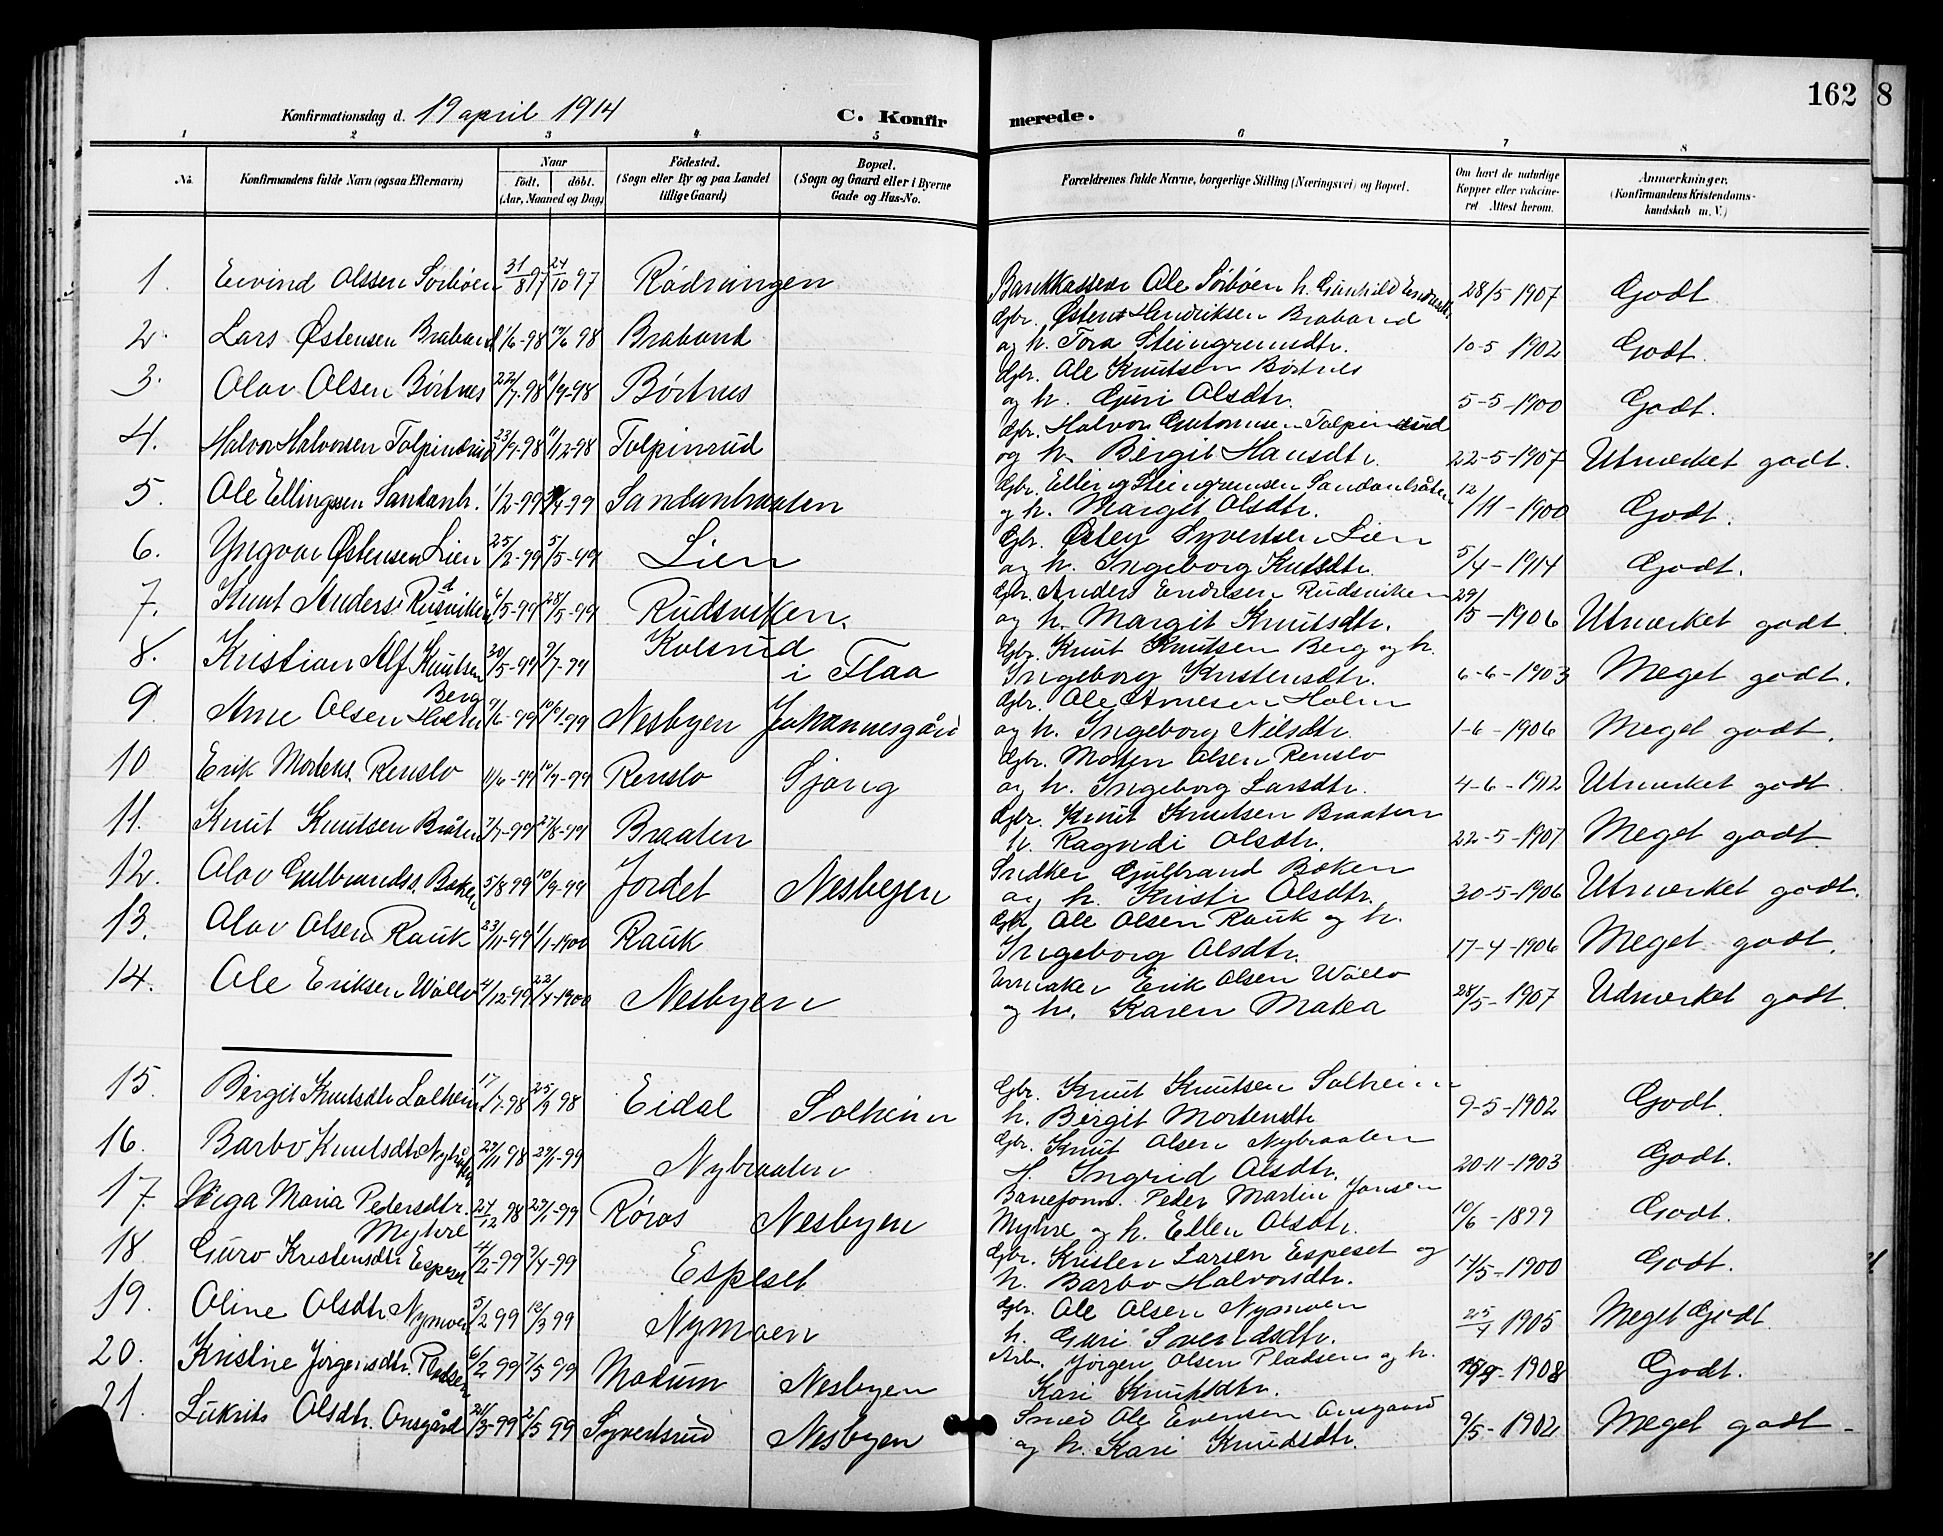 162
8
Konfirmationsdag d. 19 april 1914 C. Konfirmerede.
1 2 3 4 5 6 7 8
No. Konfirmandens fulde Navn (ogsaa Efternavn) Naar födt. döbt. (Aar, Maaned og Dag) Födested. (Sogn eller By og paa Landet tillige Gaard) Bopæl. (Sogn og Gaard eller i Byerne Gade og Hus-No. Forældrenes fulde Navne, borgerlige Stilling (Næringsvei) og Bopæl. Om havt de naturlige Kopper eller vakcineret Attest herom. Anmærkninger. (Konfirmandens Kristendomskundskab m. V.)
1. Eivind Olssen Sörböen 31/8 97 24/10 97 Rödningen Bankkasserer Ole Sörböen h. Gunhild 28/5 1907 Godt
2. Lars Østensen Braband 1/6-98 19/6 98 Braband Gbr. Østen Hendriksen Braband
og h. Tora Steingrimsdtr. 10-5 1902 Godt.
3. Olav Olsen Börtnes 22/7-98 11/9-98 Börtnes Gbr. Ole Knutsen Börtnes
og h. Guri Olsdtr. 5-5-1900 Godt.
4. Halvor Halvorsen Tolpinrud 23/9-98 11/12-98 Tolpinrud Gbr. Halvor Guttormsen Tolpinrud
og h. Bergit Hansdtr. 22-5-1907 Utmerket godt.
5. Ole Ellingsen Sandanh. 1/2-99 3/4-99 Sandanbraaten Gbr. Elling Steingrimsen Sandanbråten
og h. Margit Olsdtr. 12/11-1900 Godt.
6. Yngvar Østensen Lien 25/2-99 5/5-99 Lien Gbr. Østen Syvertsen Lien
og h. Ingeborg Knutsdtr. 5/4-1914 Godt.
7. Knut Anders. Rudsviken 6/5-99 28/5-99 Rudsviken. Gbr. Anders Endresen Rudsviken
og h. Margit Knutsdtr. 29/5-1906 Utmerket godt.
8. Kristian Alf Knutsen Berg 20/5-99 9/7-99 Kolsrud i Flaa Gbr. Knut Knutsen Berg og h.
Ingeborg Kristensdtr. 6-6-1903 Meget godt.
9 Arne Olsen Holm 9/6-99 10/9-99 Nesbyen Johannesgård Gbr. Ole Arnesen Holm
og h. Ingeborg Nilsdtr. 1-6-1906 Meget godt.
10 Erik Mortens. Renslo 11/6-99 10/9-99 Renslo Sjong Gbr. Morten Olsen Renslo
og h. Ingeborg Larsdtr. 4-6-1912 Utmerket godt.
11. Knut Knutsen Bråten 7/7-99 27/8-99 Braaten Gbr. Knut Knutsen Braaten
h. Ragndi Olsdtr. 22-5-1907 Meget godt.
12. Olav Gulbrandss. Baken 5/8 99 10/9-99 Jordet Nesbyen Snedker Gulbrand Baken
og h. Kristi Olsdtr. 30-5-1906 Utmerket godt.
13. Olav Olsen Rauk 23/11-99 1/1-1900 Rauk Gbr. Ole Olsen Rauk og h.
Ingeborg Olsdtr. 17-4-1906 Meget godt.
14. Ole Eriksen Wöllo 4/12-99 22/4-1900 Nesbyen Urmaker Erik Olsen Wöllo
og h. Karen Matea 28/5-1907 Udmerket godt.
15. Bergit Knutsdtr Solheim 17/7-98 25/9 98 Eidal Solheim Gbr. Knut Knutsen Solheim
h. Bergit Mortensdtr 9-5-1902 Godt.
16. Barbo Knutsdtr Nybråten 22/11 98 29/1-99 Nybraaten Gbr. Knut Olsen Nybraaten
h. Ingrid Olsdtr. 20-11-1903 Godt.
17. Helga Maria Pedersdtr. Myhre 24/12 98 23/1-99 Röros Nesbyen Baneform. Peder Martin Jansen
Myhre og h. Ellen Olsdtr. 10/6-1899 Godt.
18 Guro Kristensdtr Espeset 4/2-99 9/4-99 Espeset Gbr. Kristen Larsen Espeset og
h. Barbo Halvorsdtr. 14/5-1900 Godt.
19. Oline Olsdtr Nymoen 5/2 99 12/3 99 Nymoen Gbr. Ole Olsen Nymoen
h. Guri Svendsdtr. 25/4 1905 Meget Godt.
20. Kristine Jörgensdtr. Pladsen 6/2 99 7/5 99 Modum Nesbyen Arb. Jörgen Olsen Pladsen og h.
Kari Knutsdtr. 1908 Godt.
21. Lukrits Olsdtr. Onsgård 21/3-99 2/5 99 Syvertsrud Nesbyen Smed Ole Evensen Onsgaard
og h. Kari Knudsdtr. 9/5-1902 Meget godt.